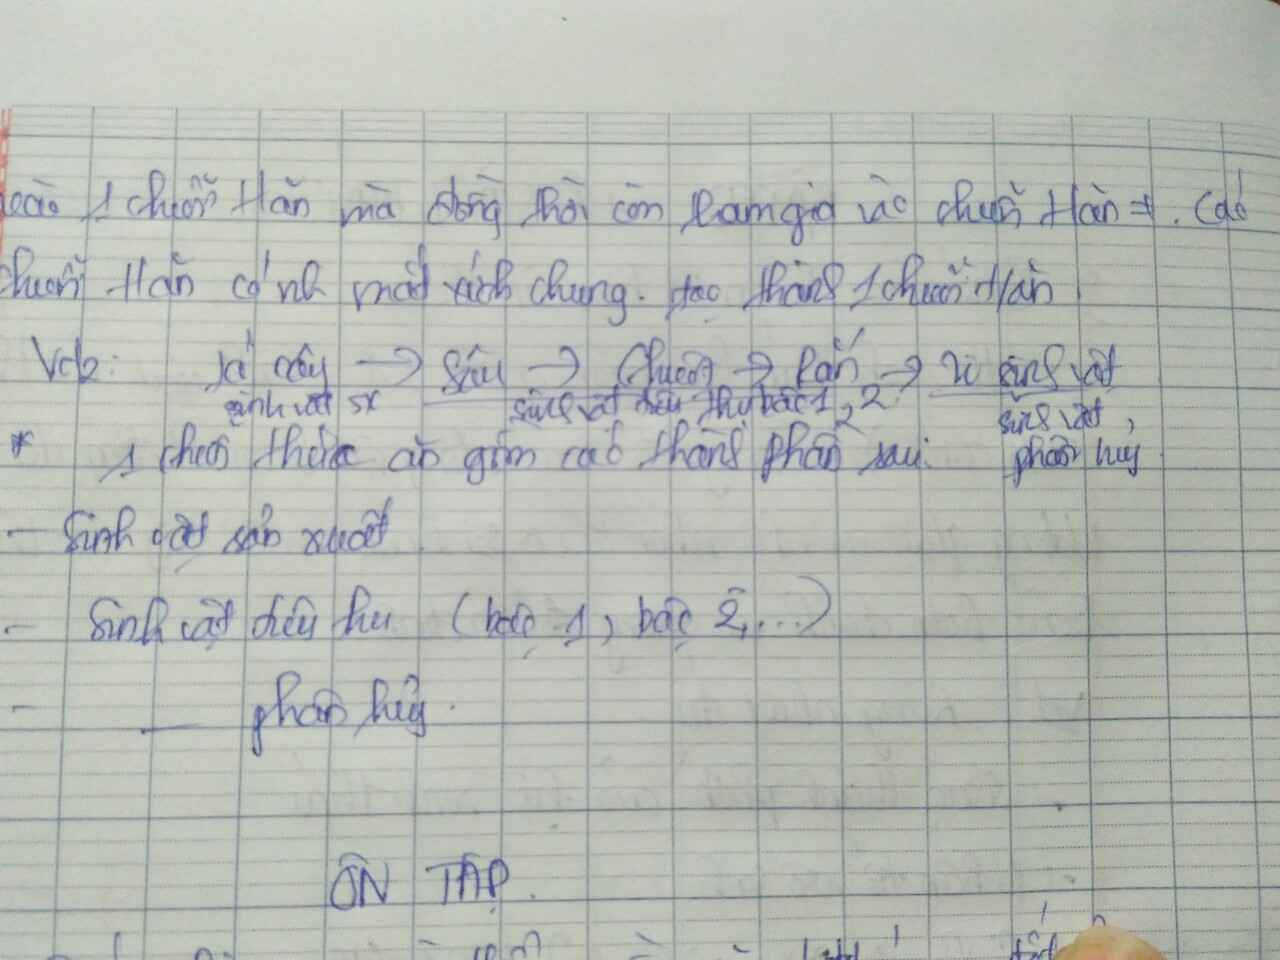 vào 1 chuỗi t/ăn mà đồng thời còn tham gia vào chuỗi t/ăn ≠. Các
chuỗi t/ăn có nh mắt xích chung. tạo thành 1 chuỗi t/ăn
Vd2: lá cây → Sâu → Chuột → Rắn → Vi sinh vật
sinh vật sx sinh vật tiêu thụ bậc 1, 2 sinh vật,
* 1 chuỗi thức ăn gồm các thành phần sau: phân huỷ
- Sinh vật sản xuất
- Sinh vật tiêu thụ (bậc 1, bậc 2,...)
- — phân hủy.
ÔN TẬP.